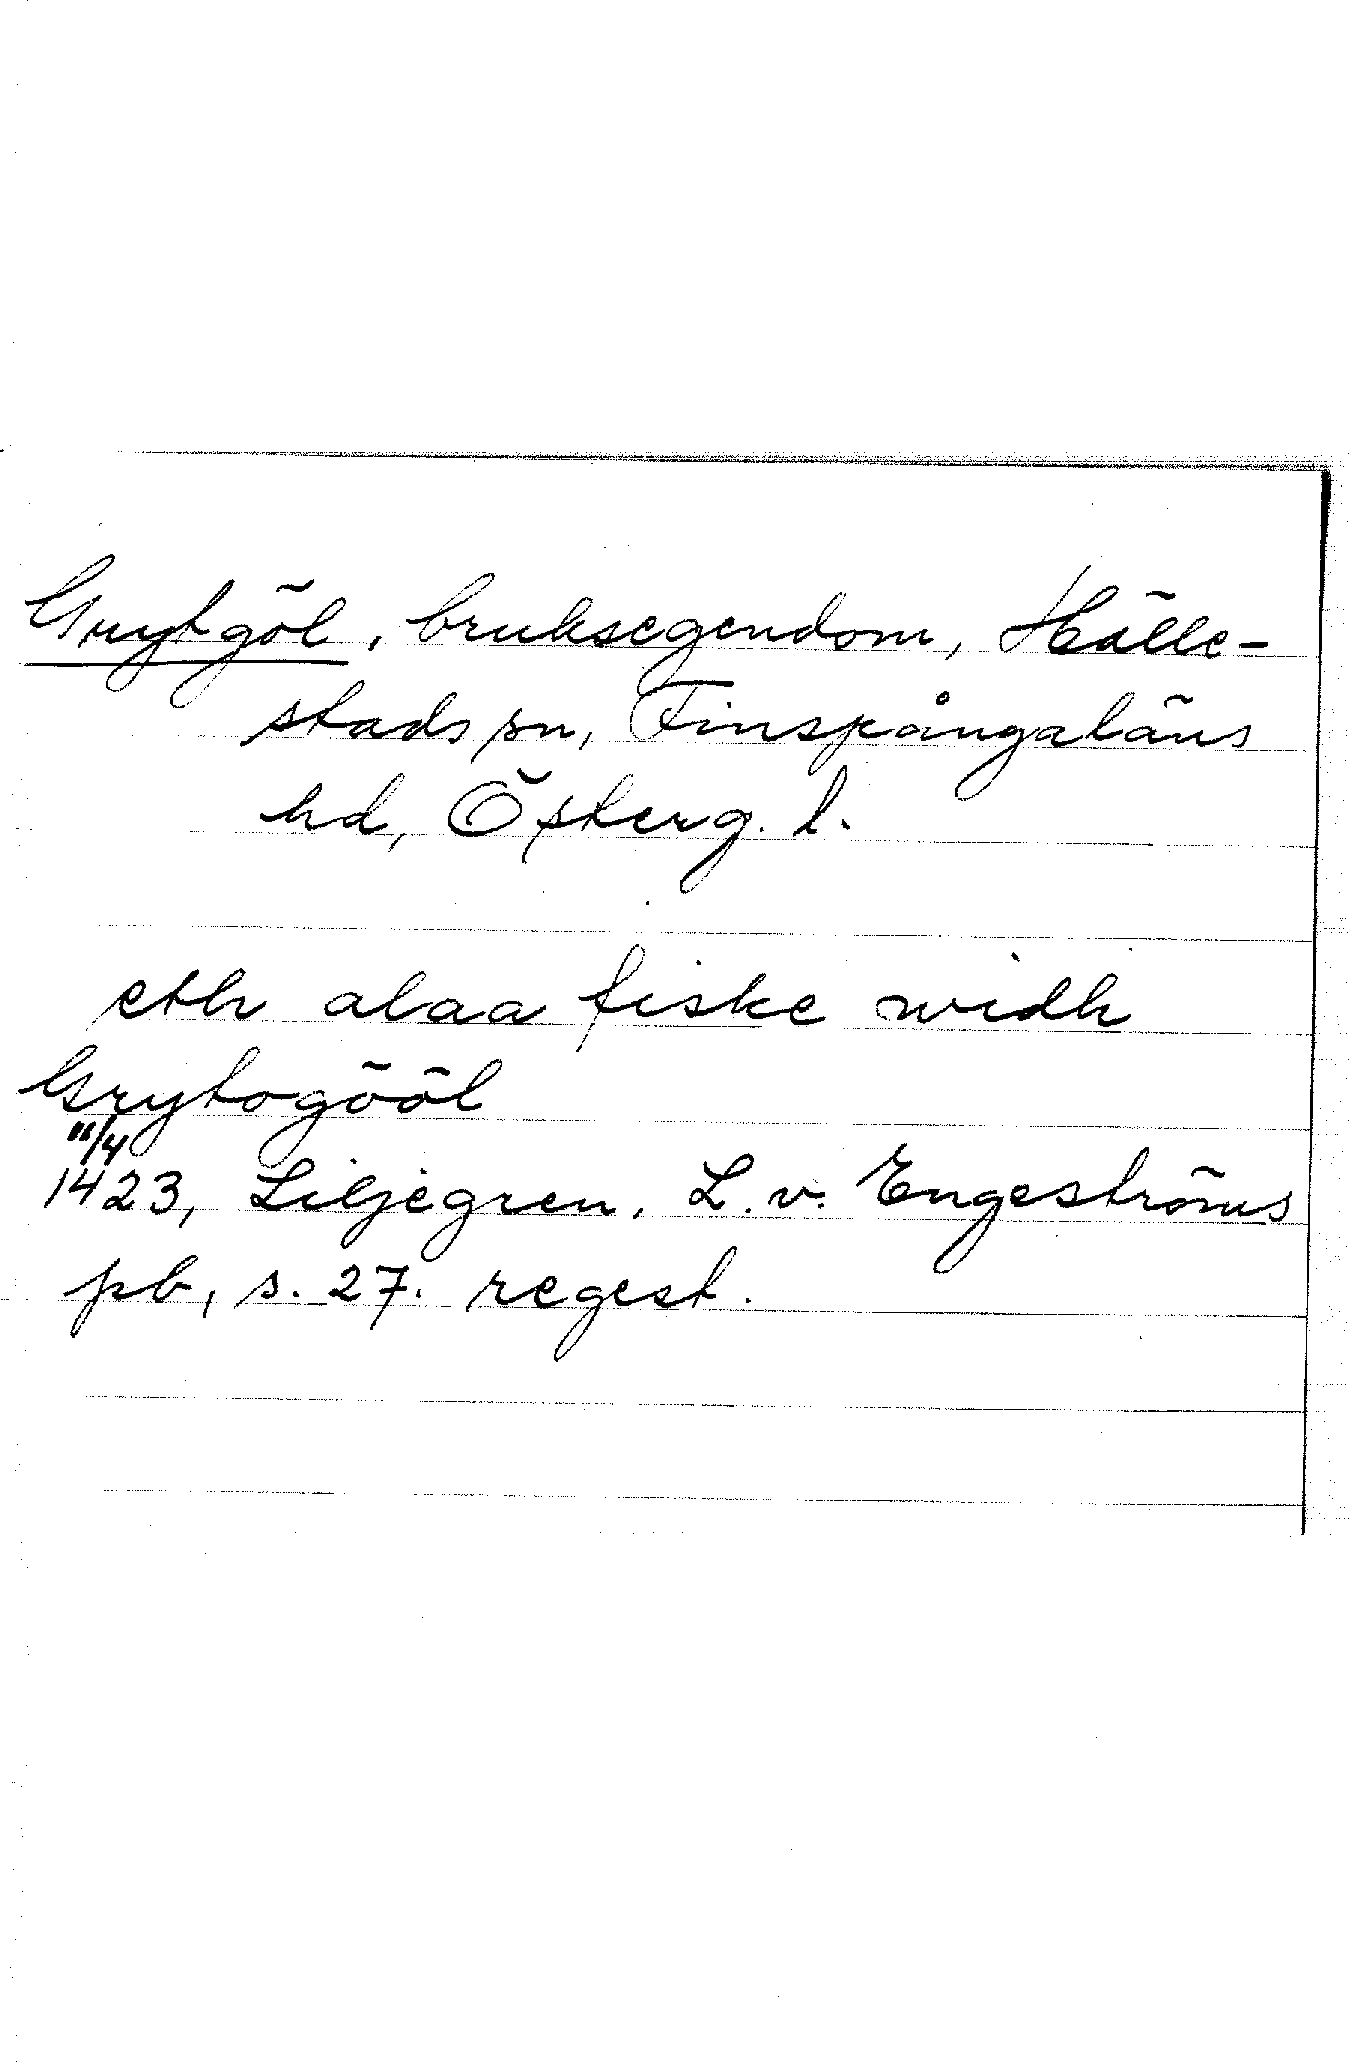 Grytgöl, bruksegendom, Hälle-
stads sn, Finspångaläns
hd, Österg. l.
eth alaa fiske widh
Grytogööl
11/4
1423, Liljegren, L. v. Engeströms
pb, s. 27. regest.